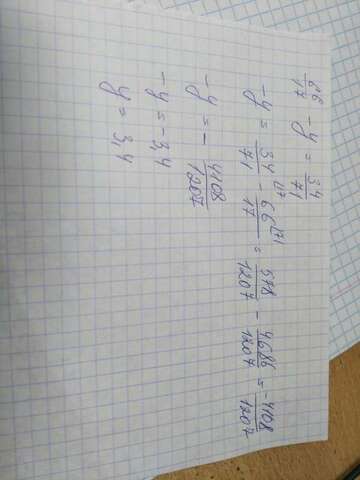 66/17 - y = 34/71
-y = 34/71 ⁽¹⁷ - 66/17 ⁽⁷¹ = 578/1207 - 4686/1207 = -4108/1207
-y = - 4108/1207
-y = -3,4
y = 3,4